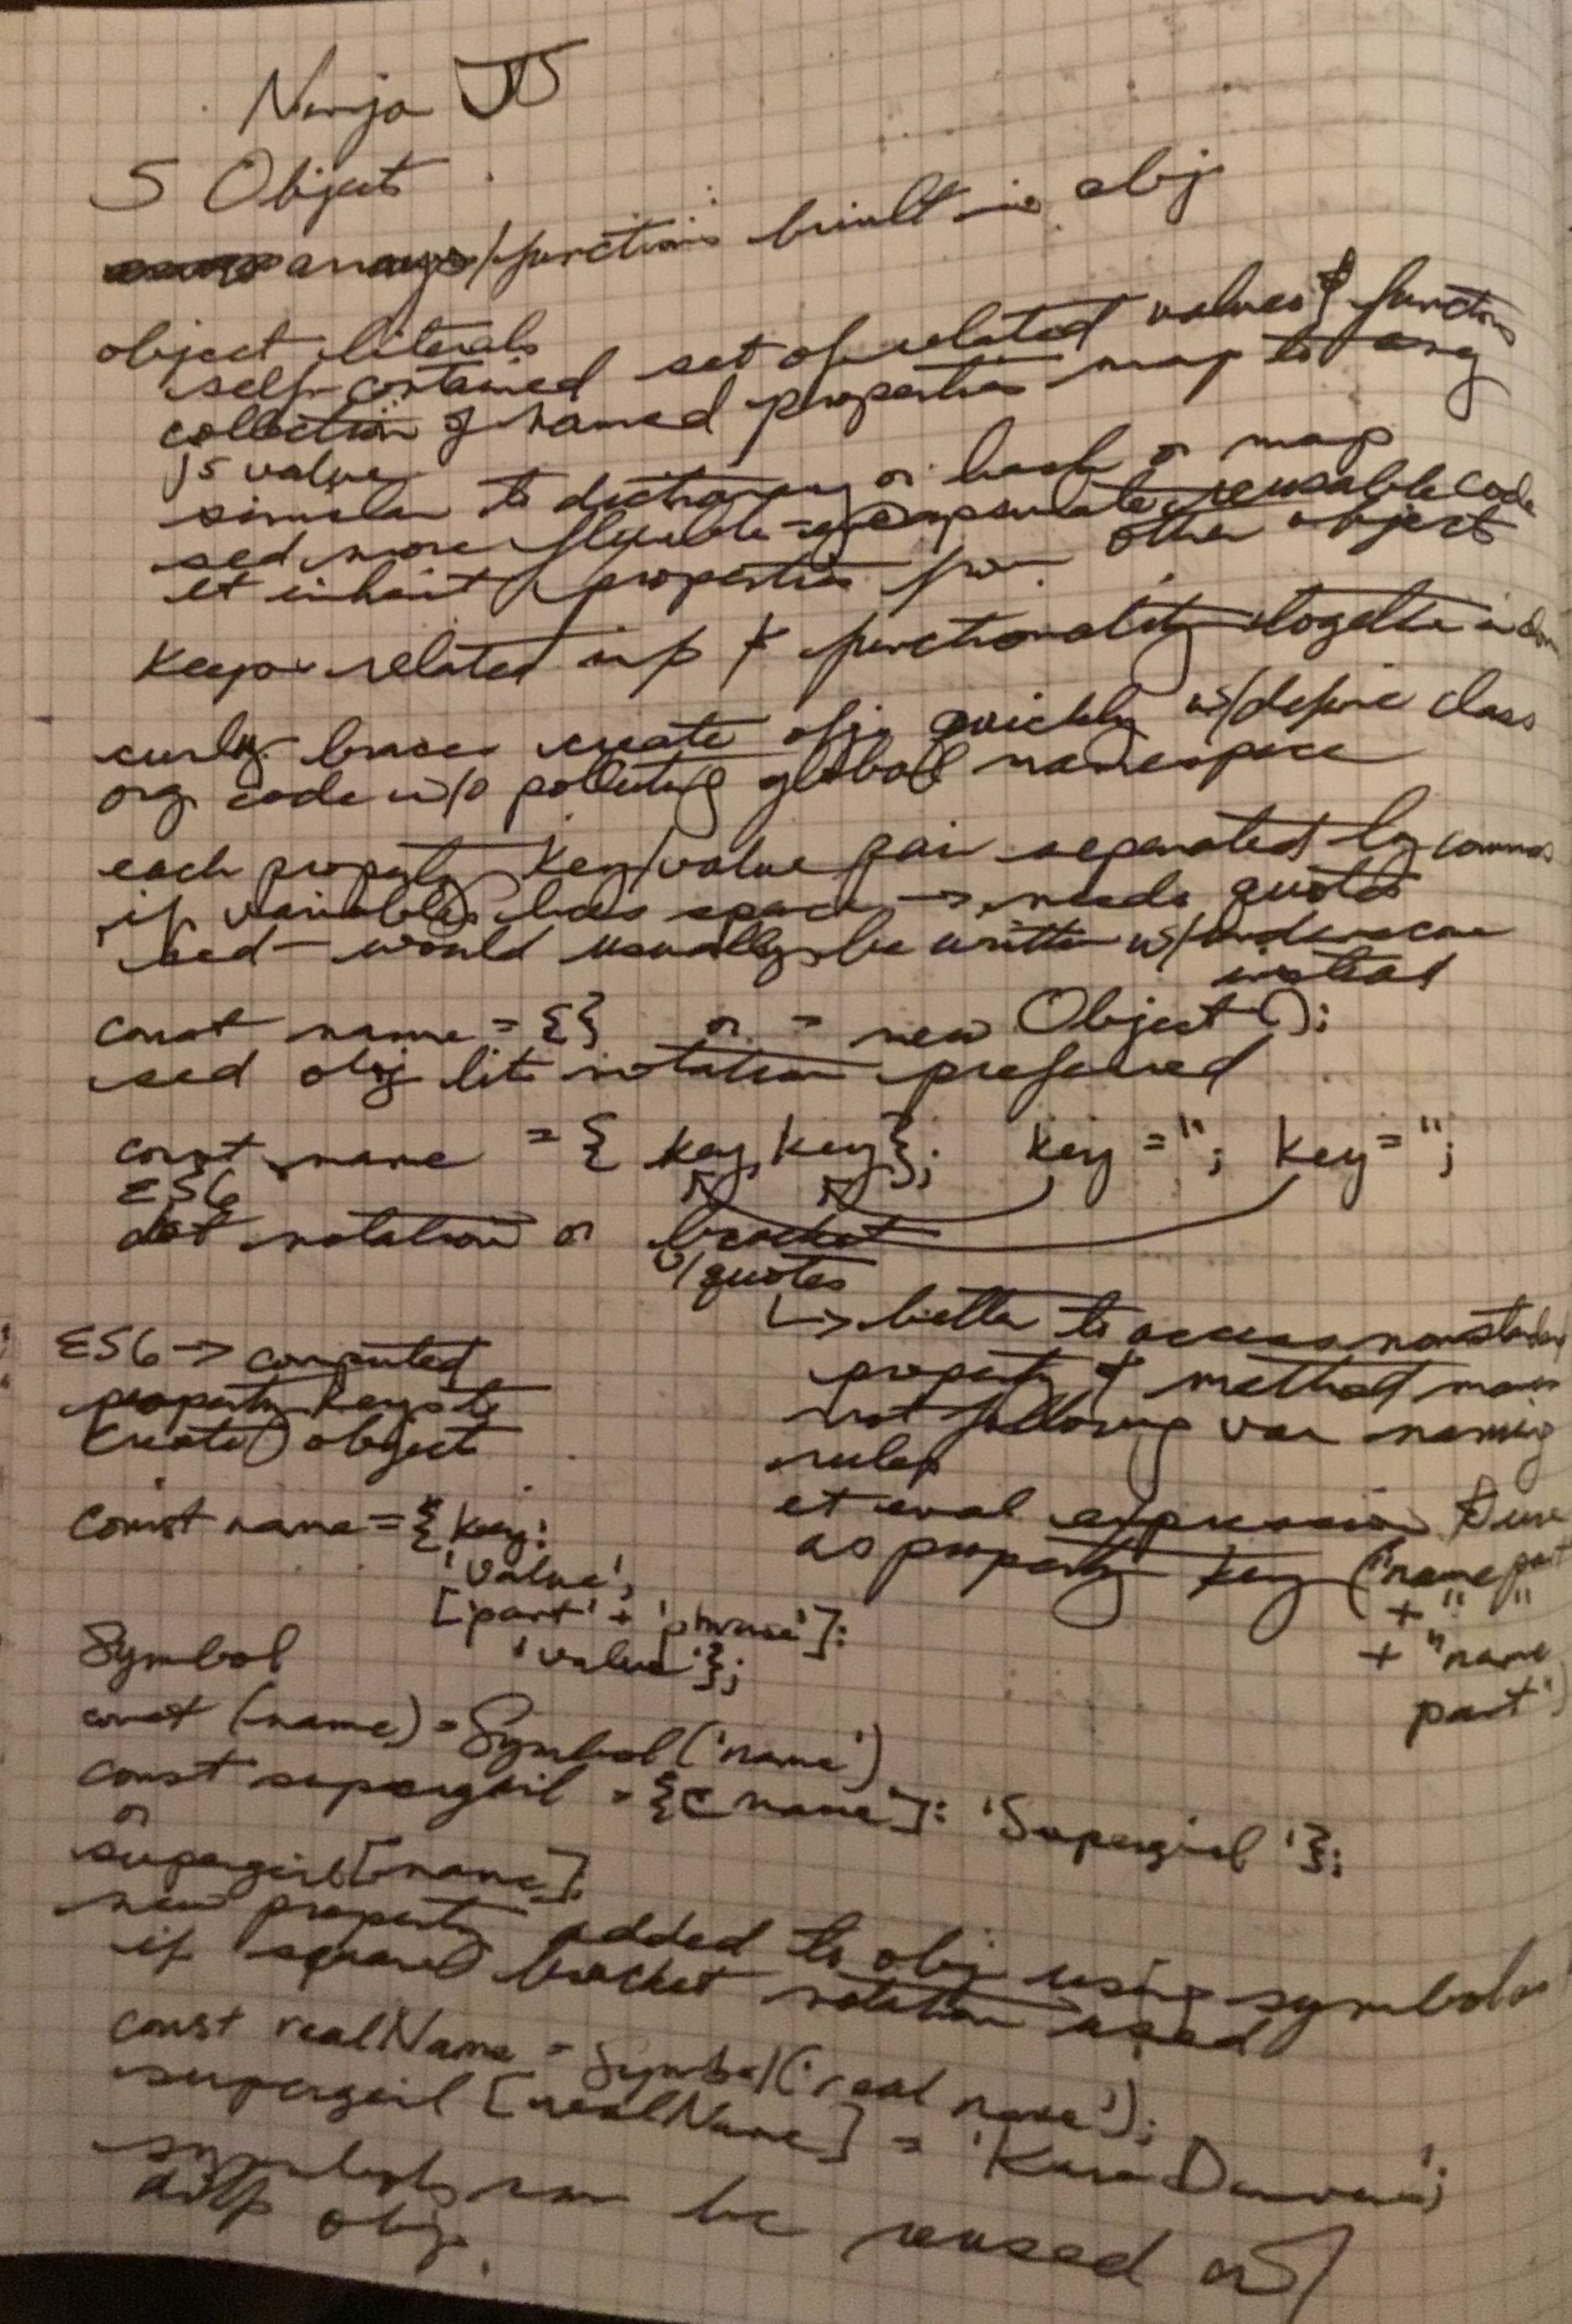 Ninja JS
5 Objects
arrays/functions built in obj
object literals
self-contained set of related values & functions
collection of named properties map to any
js value
similar to dictionary or hash or map
sed more flexible → encapsulate reusable code
et inherit properties from other object
Keeps related inf & functionality together
curly braces create obj quickly w/define class
org. code w/o polluting global namespace
each property key/value pair separated by commas
if variable has space → needs quotes
sed — would usually be written w/underscore
instead
const name = {} or = new Object();
sed obj lit notation preferred
const name = { key, key}; key = "; key = ";
ES6
dot notation or bracket
w/quotes
↳ better to access nonstandard
property & method names
not following var naming
rules
et eval expression & use
as property key ("name part
+ " "
+ "name
part")
ES6 → computed
property keys to
create object
const name = { key:
'value',
['part' + 'phrase']:
'value'};
Symbol
const (name) = Symbol('name')
const supergirl = {[name]: 'Supergirl'};
or
supergirl[name];
new property added to obj using symbols
if square bracket notation used
const realName = Symbol('real name');
supergirl [realName] = 'Kara Danvers';
symbols can be reused w/
diff obj.